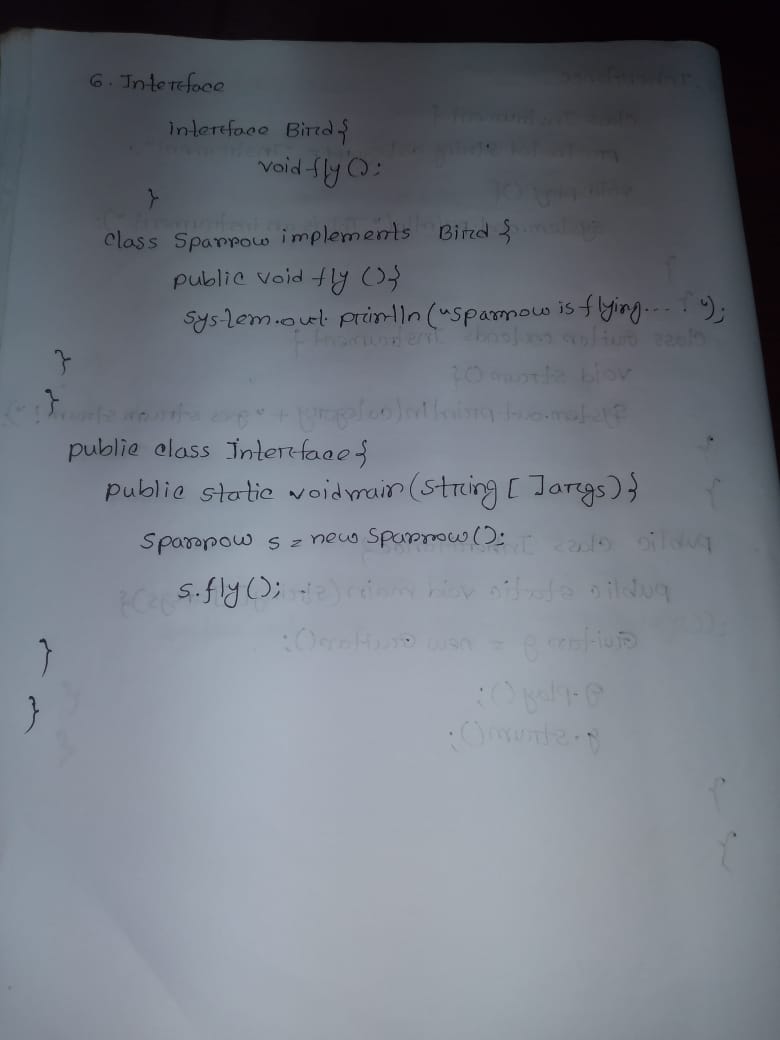 6. Interface
interface Bird{
void fly():
}
class Sparrow implements Bird {
public void fly (){
system.out. println("sparrow is flying... ! ");
}
}
public class Interface{
public static voidmain(string [ ]args){
sparrow s = new sparrow():
s.fly();
}
}